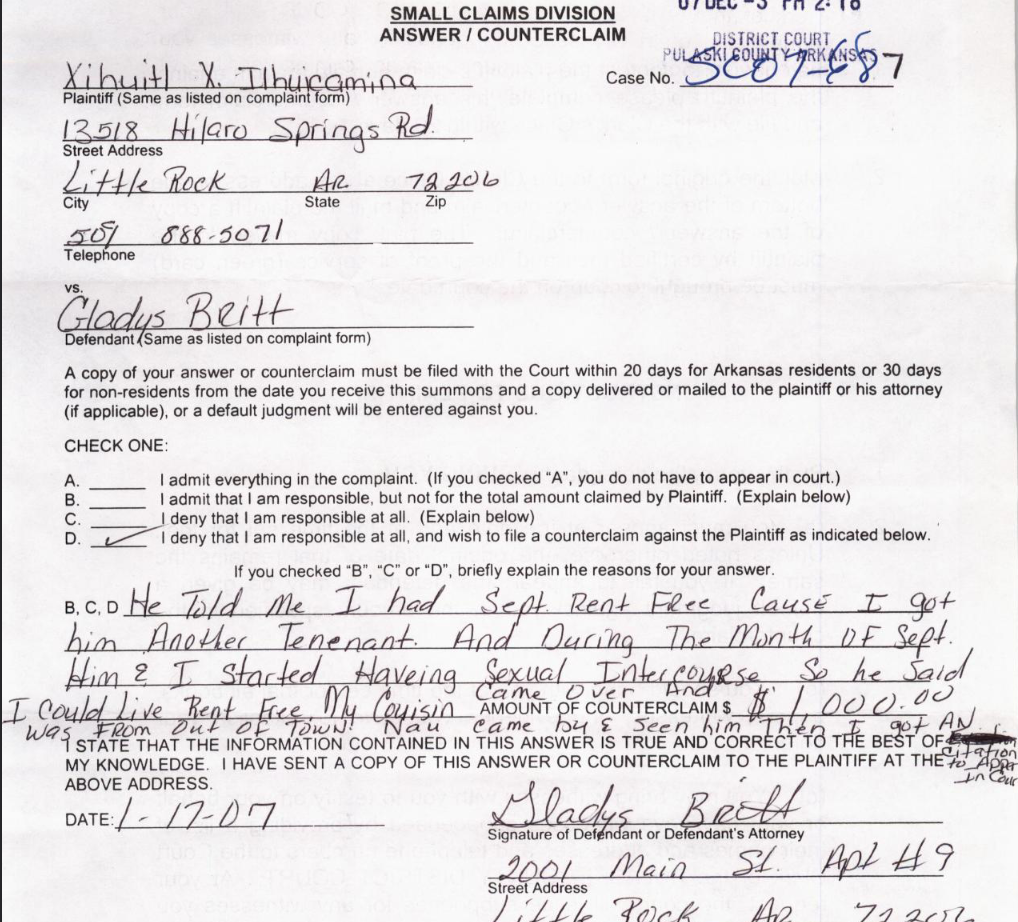 SMALL CLAIMS DIVISION
ANSWER / COUNTERCLAIM
07 DEC -3 PM 2:18
DISTRICT COURT
PULASKI COUNTY ARKANSAS
Case No.
Xihuitl X. Ilhuicamina
Plaintiff (Same as listed on complaint form)
13518 Hilaro Springs Rd.
Street Address
Little Rock AR 72206
City State Zip
501 888-5071
Telephone
vs.
Gladys Britt
Defendant (Same as listed on complaint form)
A copy of your answer or counterclaim must be filed with the Court within 20 days for Arkansas residents or 30 days
for non-residents from the date you receive this summons and a copy delivered or mailed to the plaintiff or his attorney
(if applicable), or a default judgment will be entered against you.
CHECK ONE:
A. I admit everything in the complaint. (If you checked "A", you do not have to appear in court.)
B. I admit that I am responsible, but not for the total amount claimed by Plaintiff. (Explain below)
C. I deny that I am responsible at all. (Explain below)
D. ✓ I deny that I am responsible at all, and wish to file a counterclaim against the Plaintiff as indicated below.
If you checked "B", "C" or "D", briefly explain the reasons for your answer.
B, C, D He Told Me I had Sept. Rent Free Cause I got
him Another Tenenant. And During The Month OF Sept.
Him & I Started Haveing Sexual Intercourse So he Said
I Could Live Rent Free. My Couisin Came Over And
AMOUNT OF COUNTERCLAIM $ $ 1,000.00
Was From Out OF Town! Nau Came by & Seen him Then I got AN
Citation to Appe In Cour
I STATE THAT THE INFORMATION CONTAINED IN THIS ANSWER IS TRUE AND CORRECT TO THE BEST OF
MY KNOWLEDGE. I HAVE SENT A COPY OF THIS ANSWER OR COUNTERCLAIM TO THE PLAINTIFF AT THE
ABOVE ADDRESS.
DATE: 1-17-07 Gladys Britt
Signature of Defendant or Defendant's Attorney
2001 Main St. Apt #9
Street Address
Little Rock AR 72206